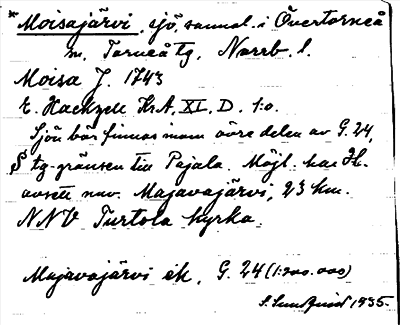 *Moisajärvi, sjö, sannol. i Övertorneå
sn. Torneå tg, Norrb. l.
Moisa J. 1743
E. Hackzell KrA, XI, D. 1:o.
Sjön bör finnas inom övre delen av G. 24,
tg-gränsen till Pajala. Möjl. har H.
avsett nuv. Majavajärvi, 23 km.
NNV Turtola kyrka.
Majavajärvi ek. G. 24 (1:200.000)
S. Lundquist 1935.